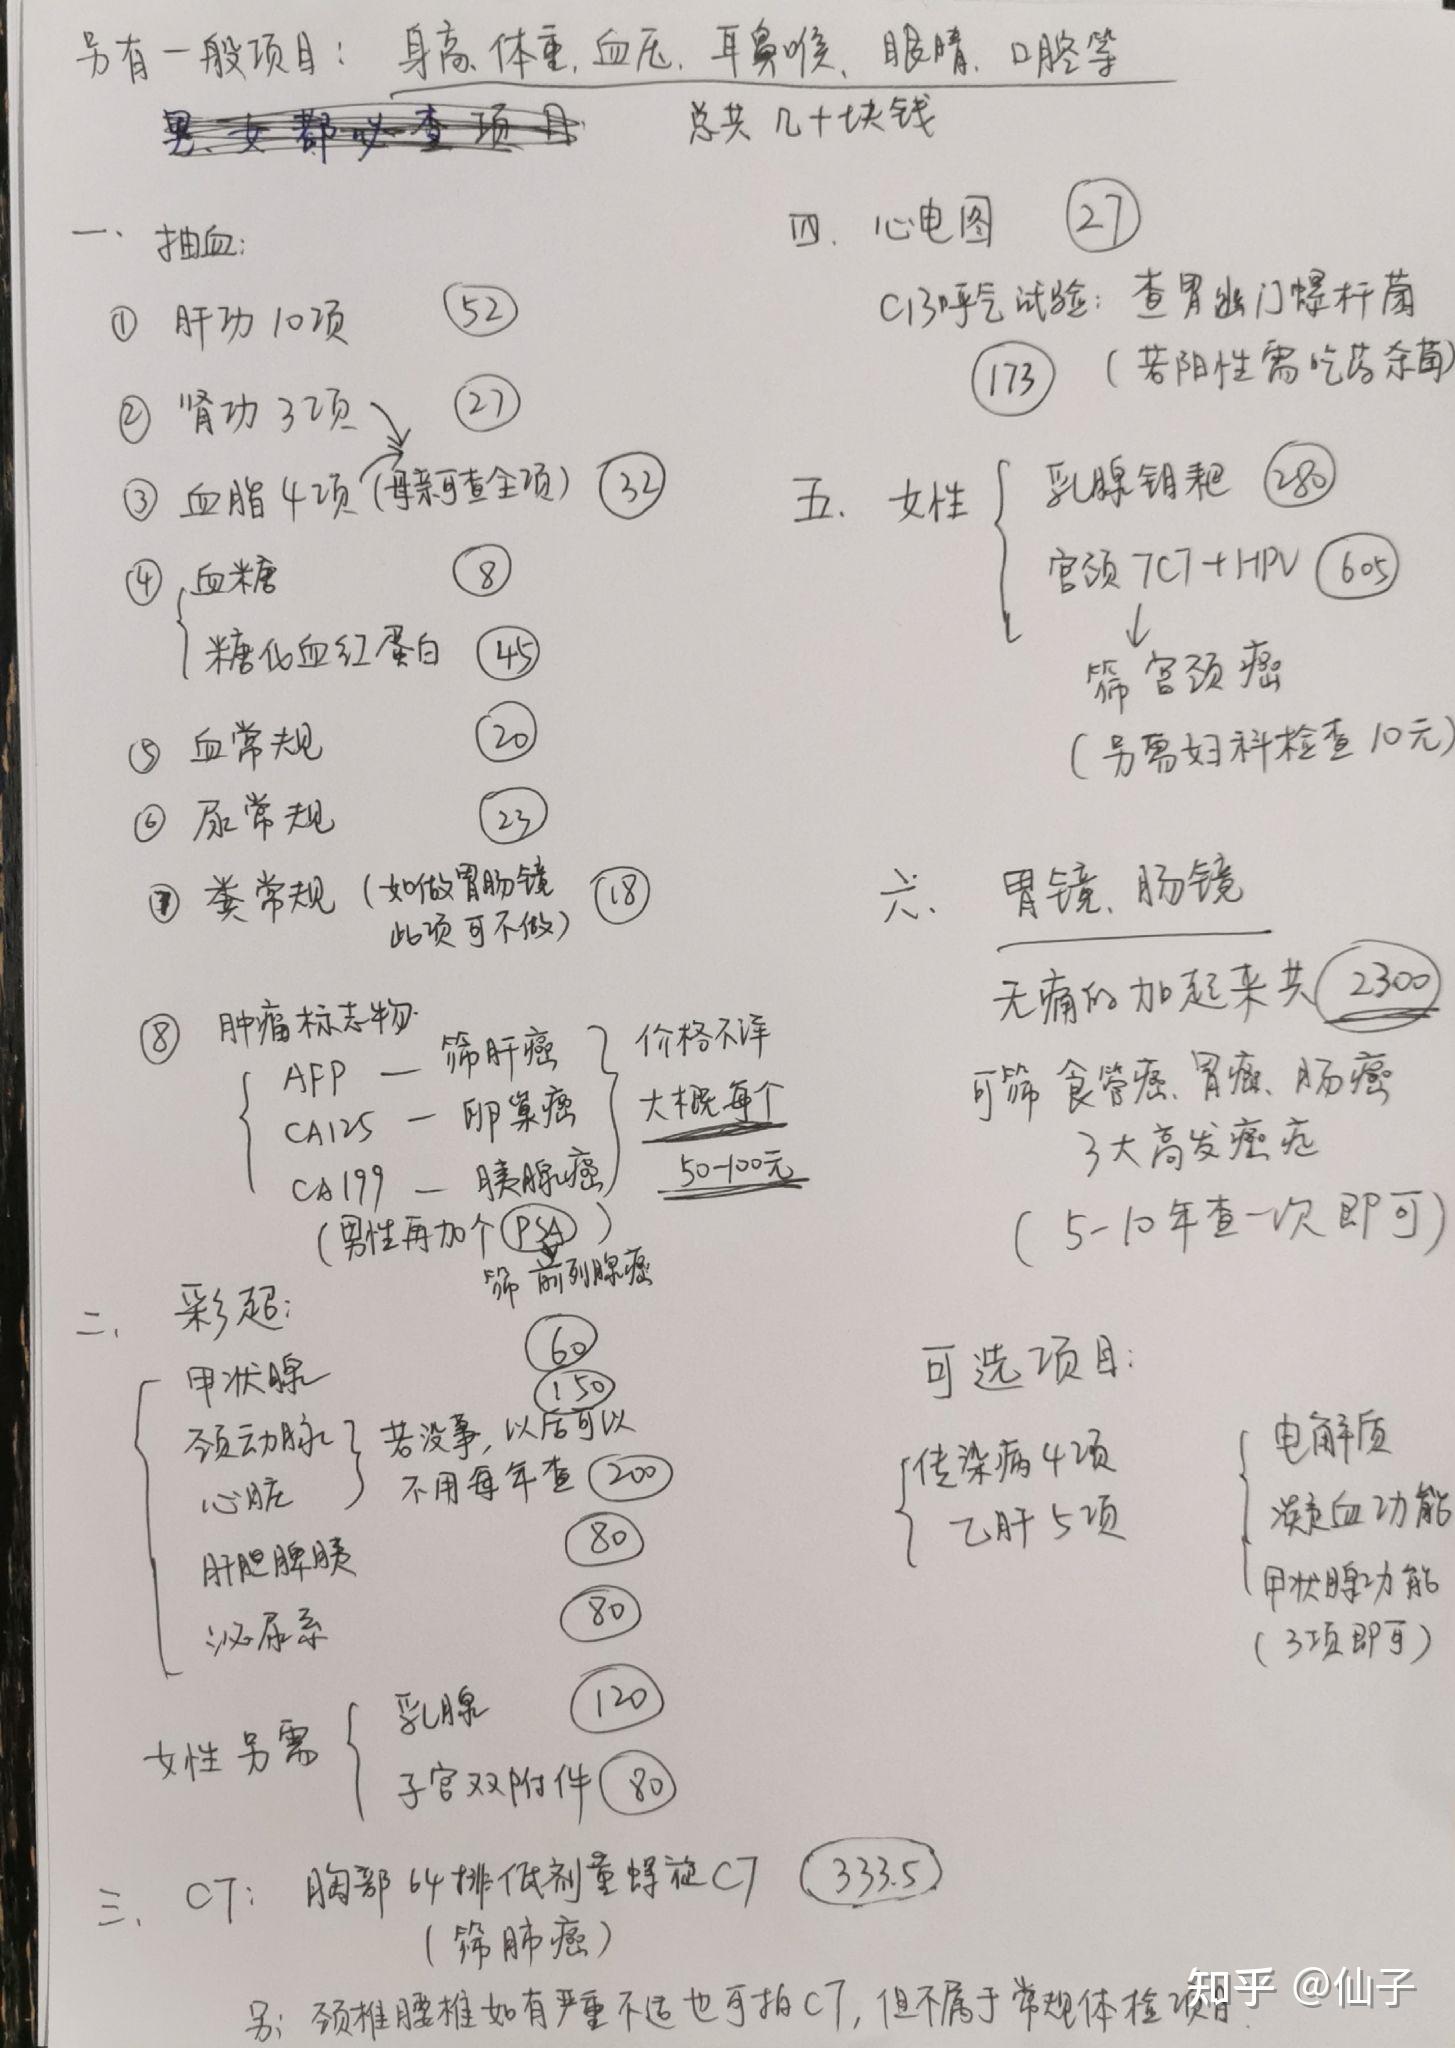 另有一般项目： 身高、体重、血压、耳鼻喉、眼睛、口腔等
男、女都必查项目
总共几十块钱
一、抽血：
① 肝功10项 52
② 肾功3项 27
③ 血脂4项（母亲可查全项） 32
④ 血糖 8
糖化血红蛋白 45
⑤ 血常规 20
⑥ 尿常规 23
⑦ 粪常规（如做胃肠镜 18
此项可不做）
⑧ 肿瘤标志物
AFP — 筛肝癌
CA125 — 卵巢癌
CA199 — 胰腺癌
价格不详
大概每个
50-100元
（男性再加个PSA）
筛前列腺癌
二、彩超：
甲状腺 60
150
颈动脉
心脏
若没事，以后可以
不用每年查 200
肝胆脾胰 80
泌尿系 80
女性另需
乳腺 120
子宫双附件 80
三、CT： 胸部64排低剂量螺旋CT 333.5
（筛肺癌）
另：颈椎腰椎如有严重不适也可拍CT，但不属于常规体检项目.
四、心电图 27
C13呼气试验：查胃幽门螺杆菌
173 （若阳性需吃药杀菌）
五、女性
乳腺钼靶 280
宫颈TCT+HPV 605
筛宫颈癌
（另需妇科检查10元）
六、胃镜、肠镜
无痛的加起来共 2300
可筛食管癌、胃癌、肠癌
3大高发癌症
（5-10年查一次即可）
可选项目：
传染病4项
乙肝5项
电解质
凝血功能
甲状腺功能
（3项即可）
知乎 @仙子